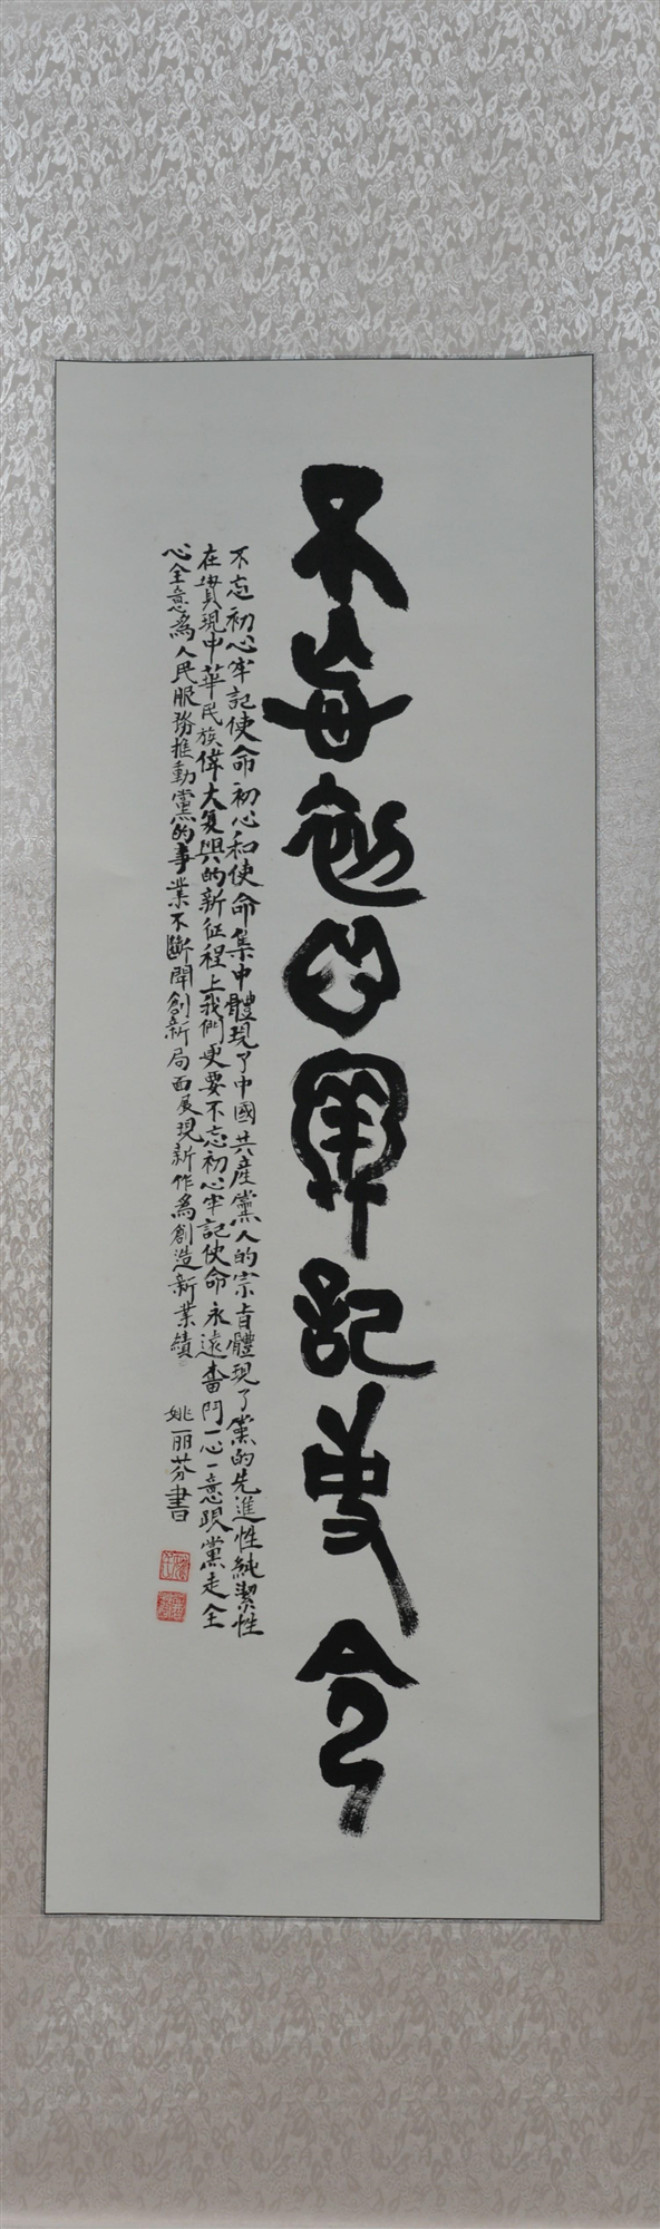 不忘初心牢記使命
不忘初心牢記使命初心和使命集中體現了中國共產黨人的宗旨體現了黨的先進性純潔性
在實現中華民族偉大复興的新征程上我們更要不忘初心牢記使命永遠奮鬥一心一意跟黨走全
心全意為人民服務推動黨的事業不斷開創新局面展現新作為創造新業績
姚丽芬書